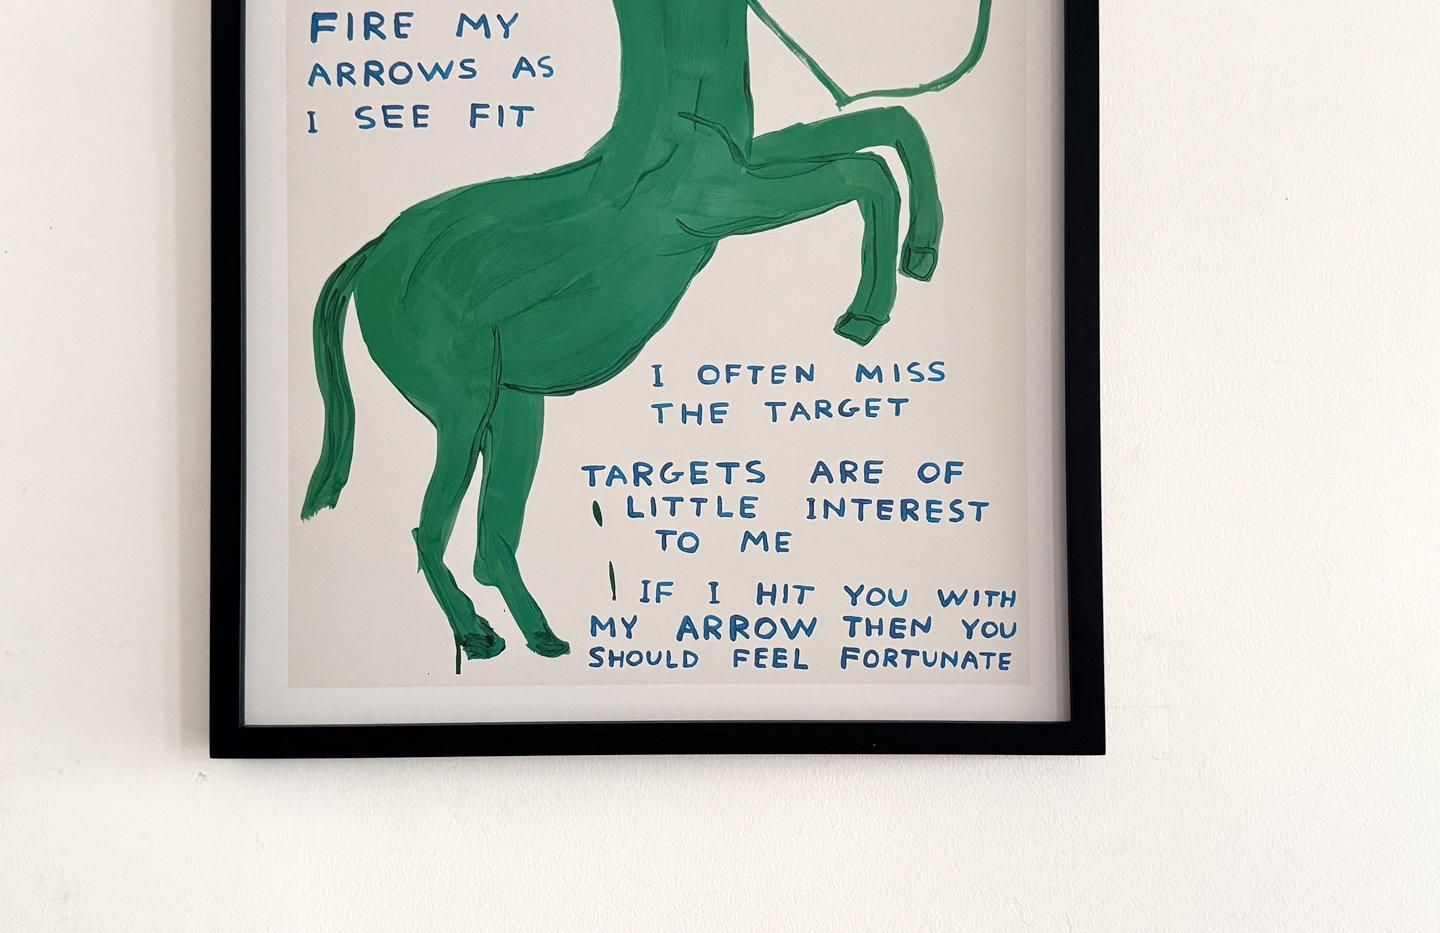 FIRE MY
ARROWS AS
I SEE FIT
I OFTEN MISS
THE TARGET
TARGETS ARE OF
LITTLE INTEREST
TO ME
IF I HIT YOU WITH
MY ARROW THEN YOU
SHOULD FEEL FORTUNATE